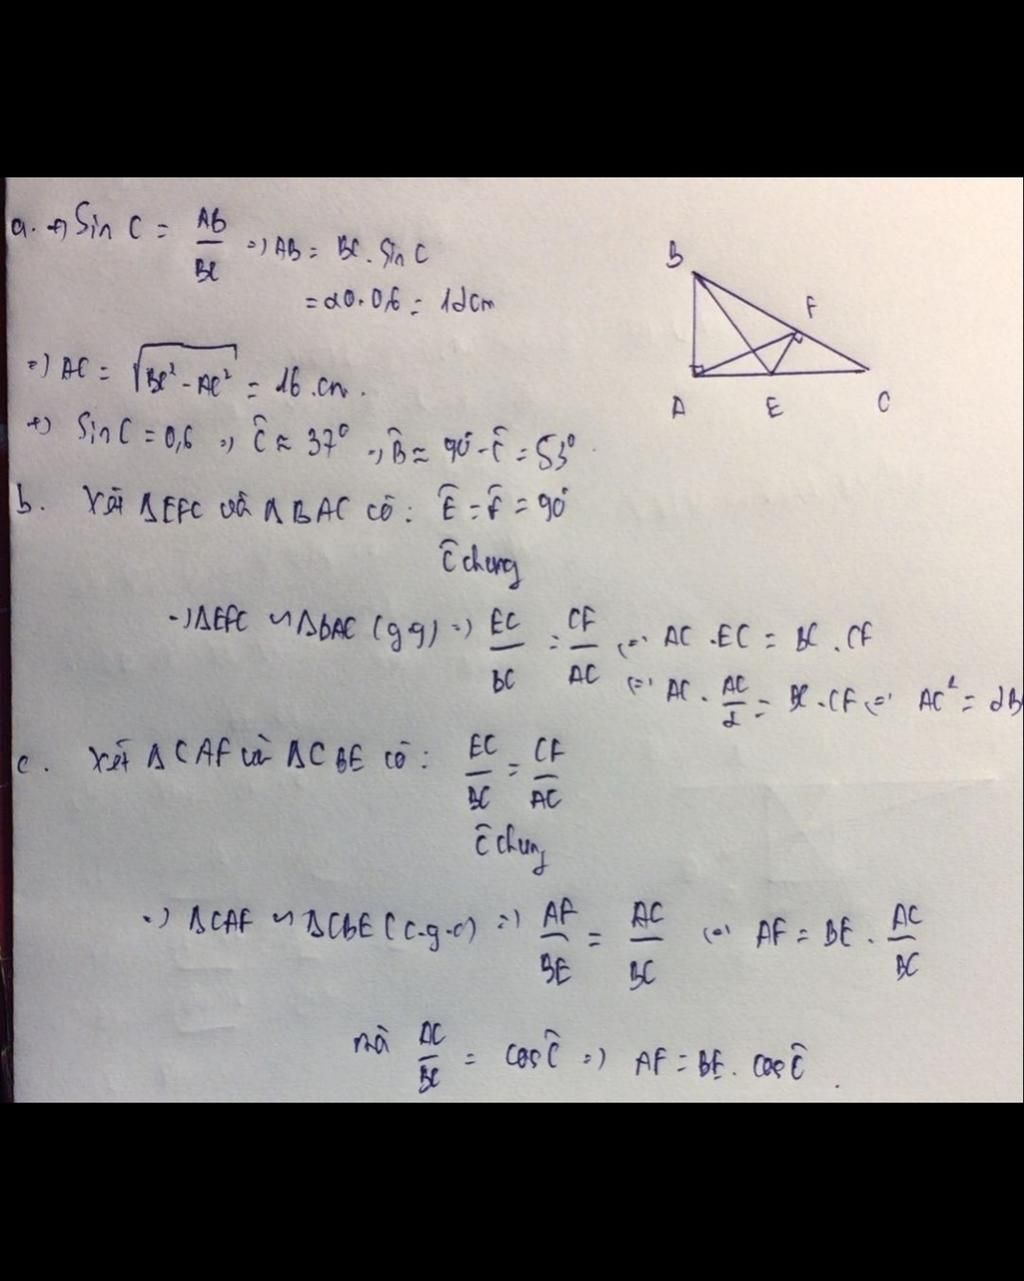 a. +) Sin C = AB/BC => AB = BC. Sin C
= 20. 0,6 = 12cm
=) AC = √(BC² - AC²) = 16 .cm.
+) SinC = 0,6 => Ĉ ≈ 37° => B̂ ≈ 90° - Ĉ = 53°
B
F
A E C
b. Xét ΔEFC và ΔBAC có: Ê = F̂ = 90°
Ĉ chung
=) ΔEFC ∽ ΔBAC (gg) =) EC/BC = CF/AC (=) AC . EC = BC . CF
(=) AC . AC/2 = BC . CF (=) AC² = 2B
c. Xét ΔCAF và ΔCBE có: EC/BC = CF/AC
Ĉ chung
=) ΔCAF ∽ ΔCBE (c.g.c) =) AF/BE = AC/BC (=) AF = BE . AC/BC
mà AC/BC = cosĈ =) AF = BE. cosĈ.